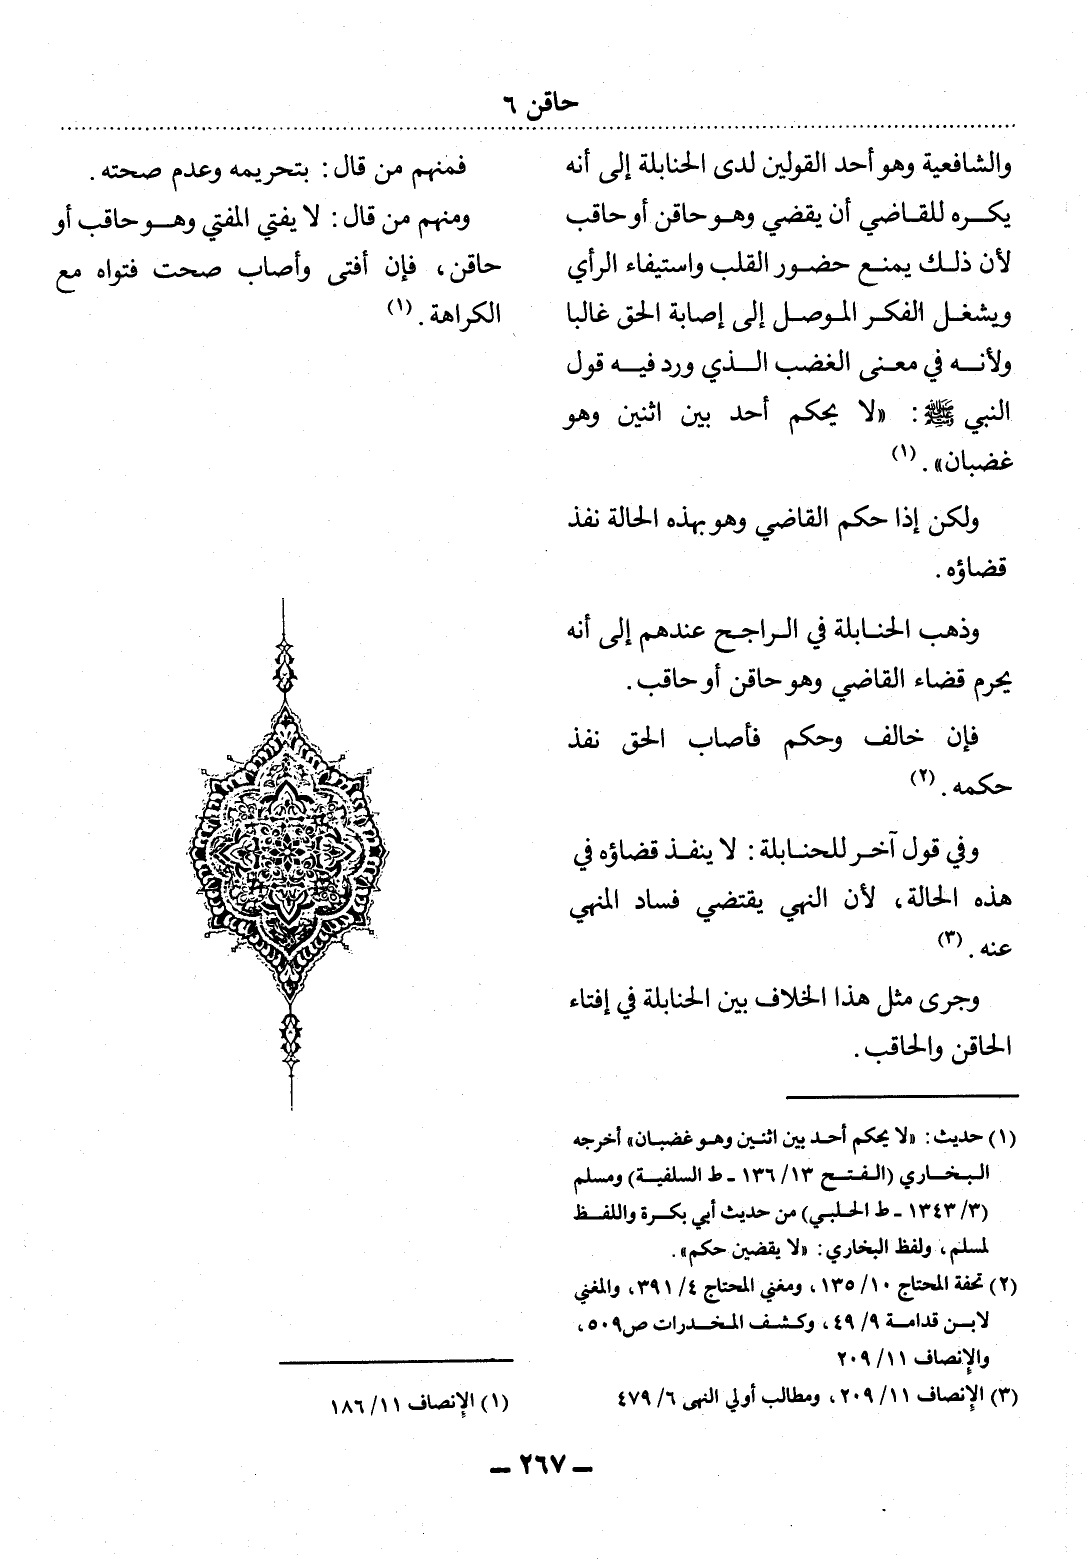 حاقن ٦
والشافعية وهو أحد القولين لدى الحنابلة إلى أنه
يكره للقاضي أن يقضي وهو حاقن أو حاقب
لأن ذلك يمنع حضور القلب واستيفاء الرأي
ويشغل الفكر الموصل إلى إصابة الحق غالبا
ولأنه في معنى الغضب الذي ورد فيه قول
النبي ﷺ: «لا يحكم أحد بين اثنين وهو
غضبان». (١)
ولكن إذا حكم القاضي وهو بهذه الحالة نفذ
قضاؤه.
وذهب الحنابلة في الراجح عندهم إلى أنه
يحرم قضاء القاضي وهو حاقن أو حاقب.
فإن خالف وحكم فأصاب الحق نفذ
حكمه. (٢)
وفي قول آخر للحنابلة: لا ينفذ قضاؤه في
هذه الحالة، لأن النهي يقتضي فساد المنهي
عنه. (٣)
وجرى مثل هذا الخلاف بين الحنابلة في إفتاء
الحاقن والحاقب.
(١) حديث: «لا يحكم أحد بين اثنين وهو غضبان» أخرجه
البخاري (الفتح ١٣/ ١٣٦ ـ ط السلفية) ومسلم
(٣/ ١٣٤٣ ـ ط الحلبي) من حديث أبي بكرة واللفظ
لمسلم، ولفظ البخاري: «لا يقضين حكم».
(٢) تحفة المحتاج ١٠/ ١٣٥، ومغني المحتاج ٤/ ٣٩١، والمغني
لابن قدامة ٩/ ٤٩، وكشف المخدرات ص٥٠٩،
والإنصاف ١١/ ٢٠٩
(٣) الإنصاف ١١/ ٢٠٩، ومطالب أولي النهى ٦/ ٤٧٩
فمنهم من قال: بتحريمه وعدم صحته.
ومنهم من قال: لا يفتي المفتي وهو حاقب أو
حاقن، فإن أفتى وأصاب صحت فتواه مع
الكراهة. (١)
(١) الإنصاف ١١/ ١٨٦
ـ ٢٦٧ ـ